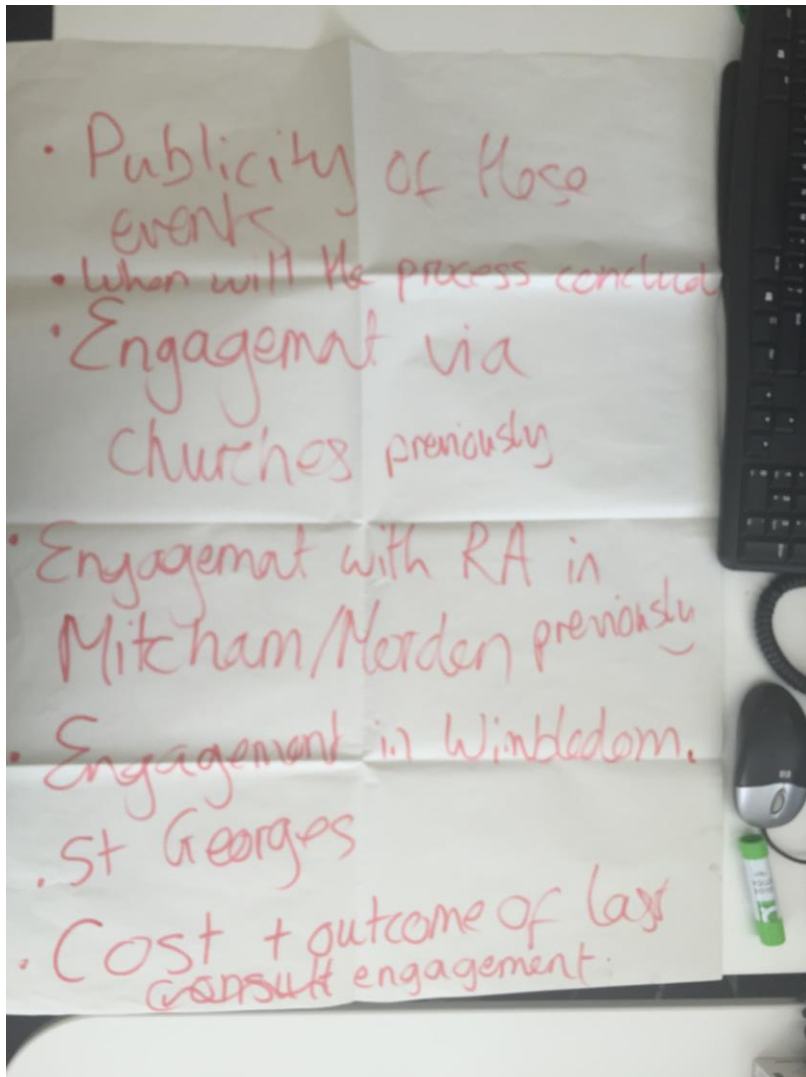 • Publicity of those
events
• When will the process conclud
• Engagemat via
churches previously
• Engagemat with RA in
Mitcham/Morden previously
• Engagement in Wimbledom.
. St Georges
. Cost + outcome of last
consult engagement.